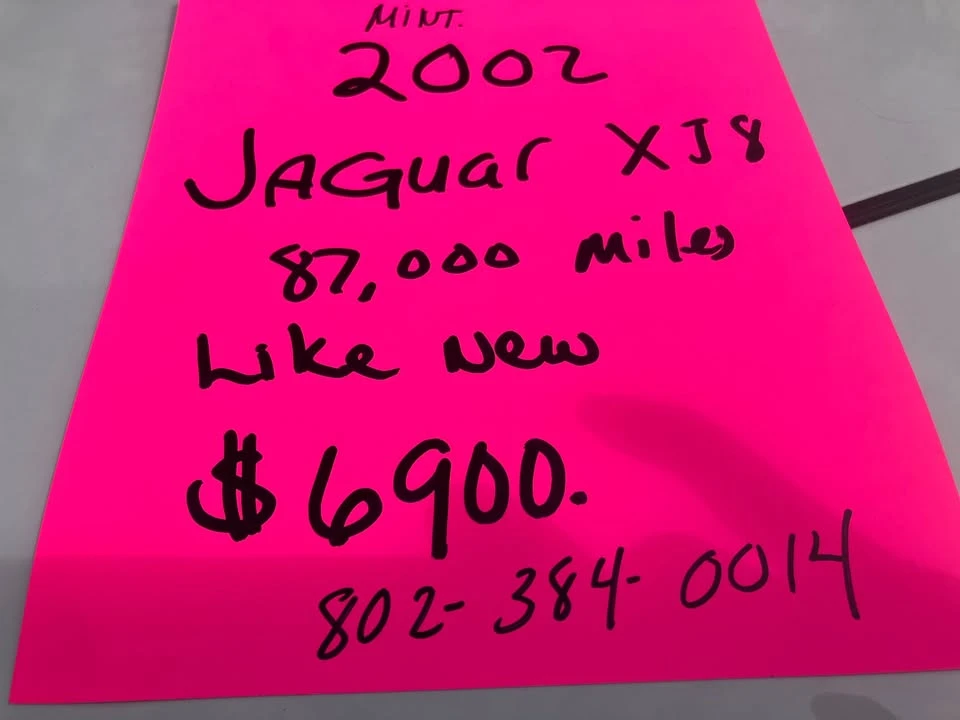 MINT.
2002
JAGuar XJ8
87,000 miles
Like New
$6900.
802-384-0014